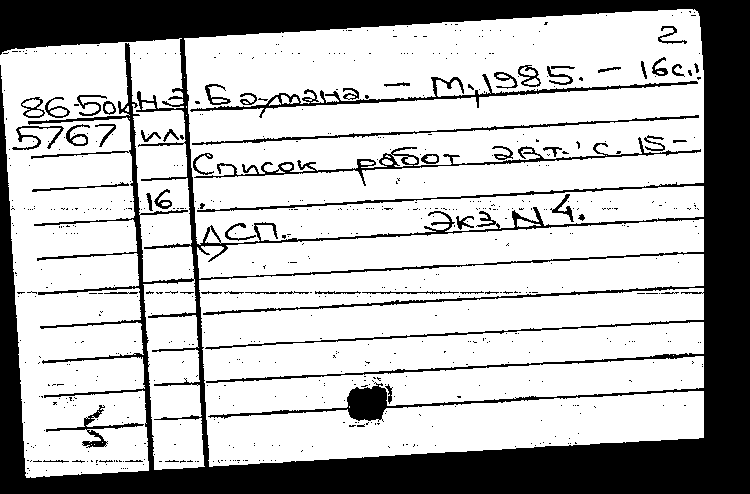 2.
86-5ок Н.Э. Баумана. – М., 1985. – 16с.:
5767 ил.
Список работ авт.: с. 15-
16.
ДСП. Экз. N 4.